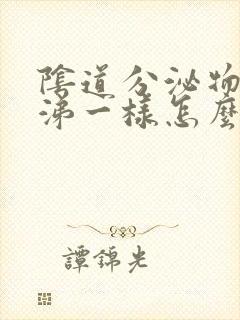 陰道分泌物
涕一樣怎麼
譚錦光